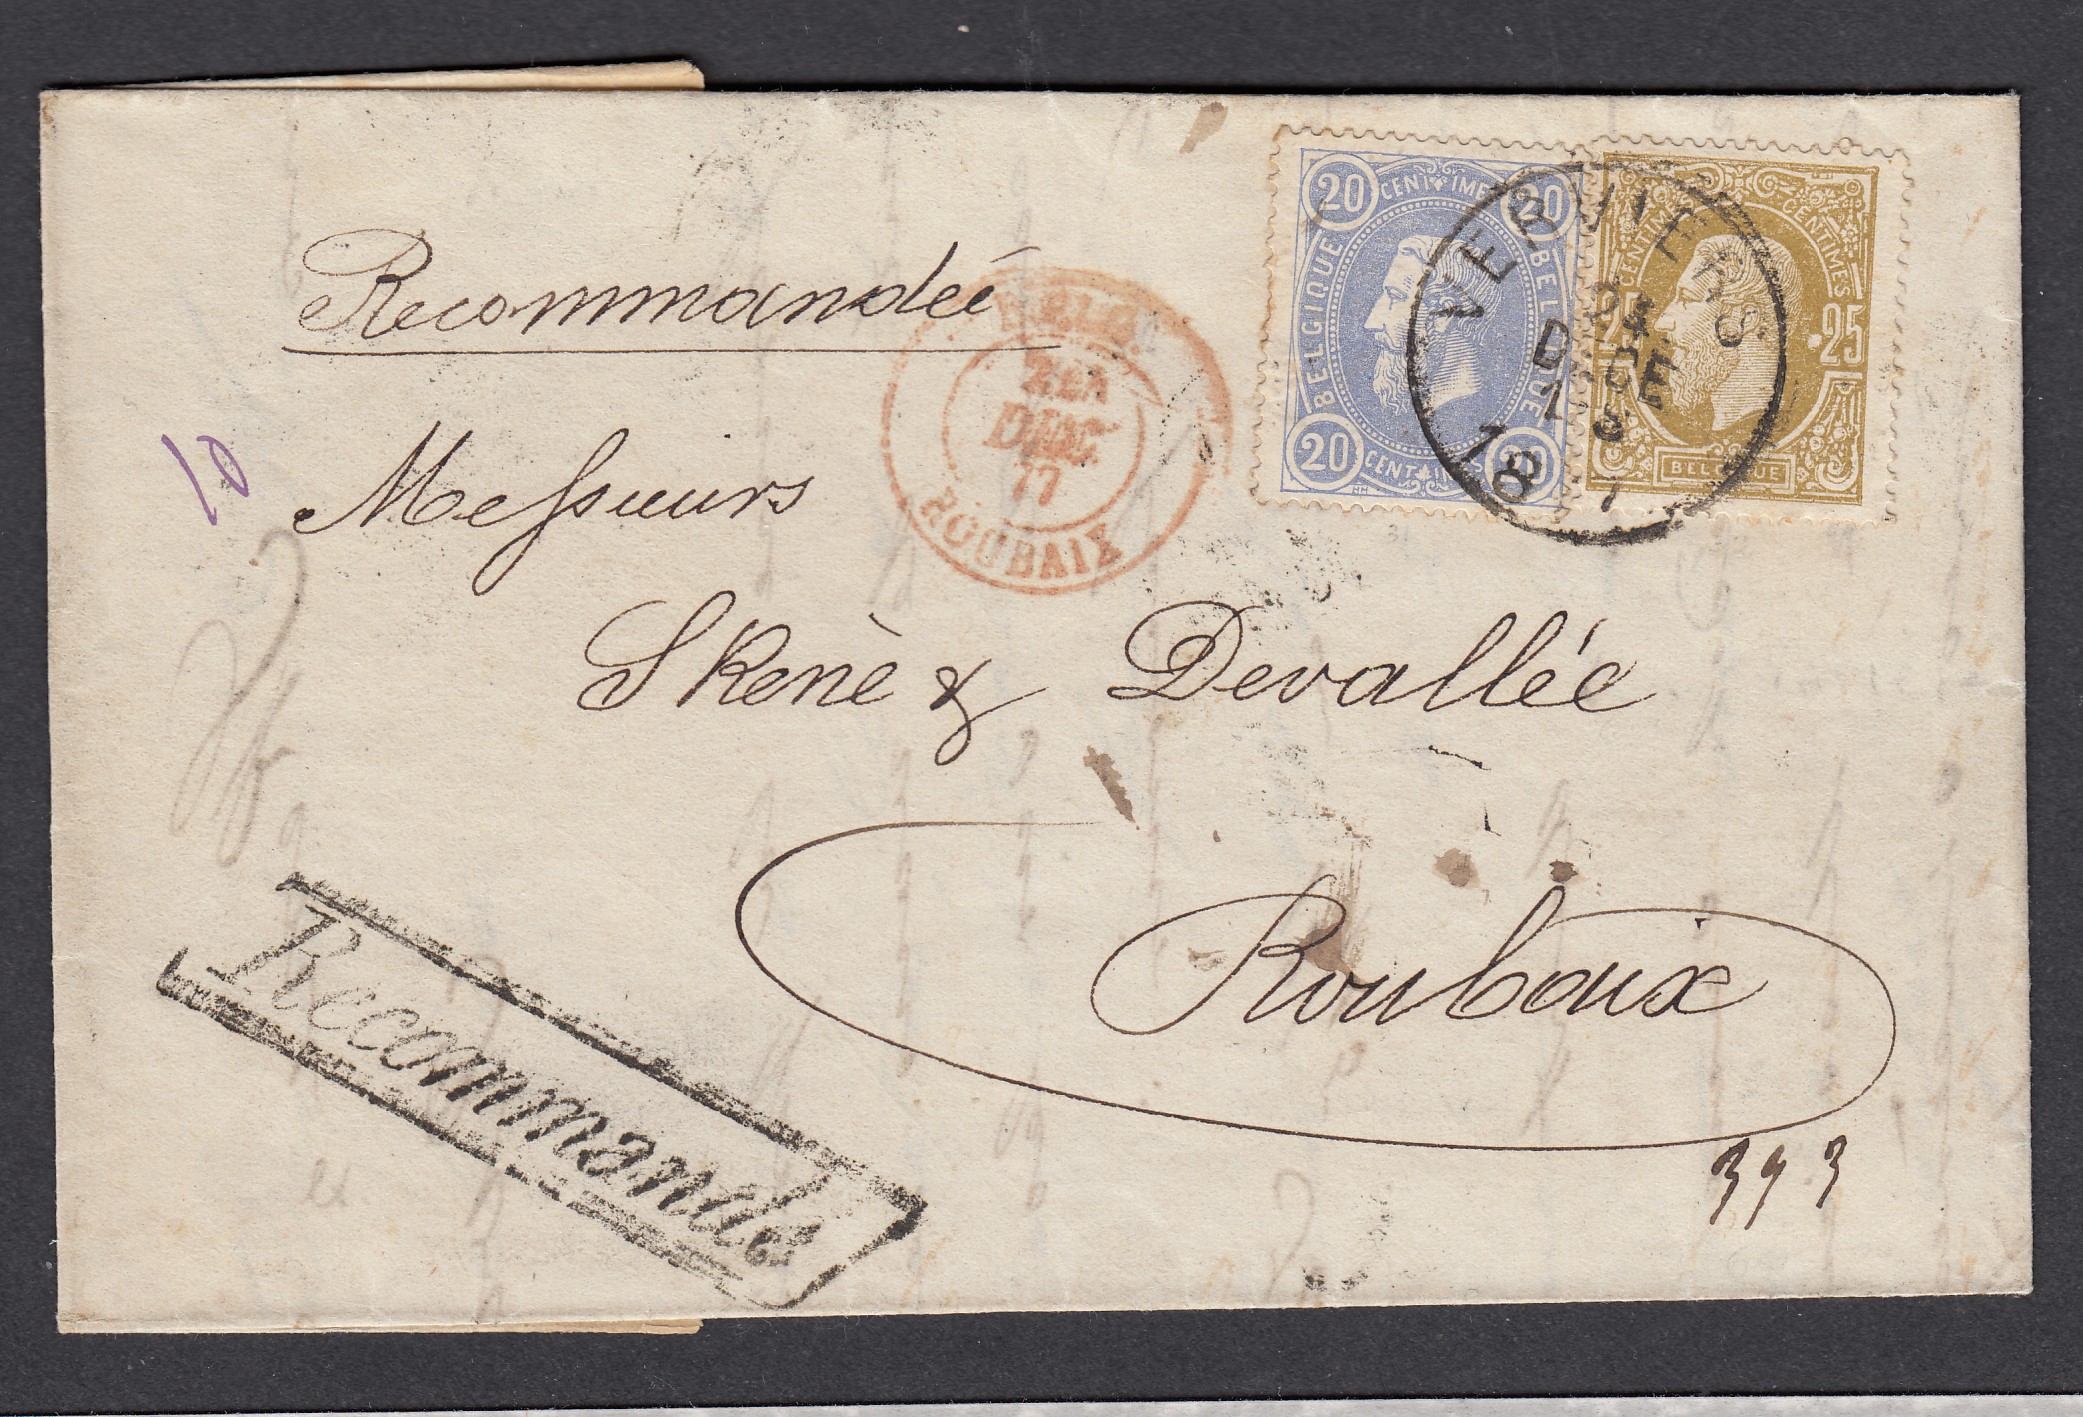 Recommandée
20 CENTIMES 20
BELGIQUE BELGIQUE
20 CENTIMES 20
CENTIMES CENTIMES
25 25
BELGIQUE
VERVIERS
DEC
18
DEC
77
ROUBAIX
10
Messieurs
Skenè & Devallée
Roubaix
393
Recommandé